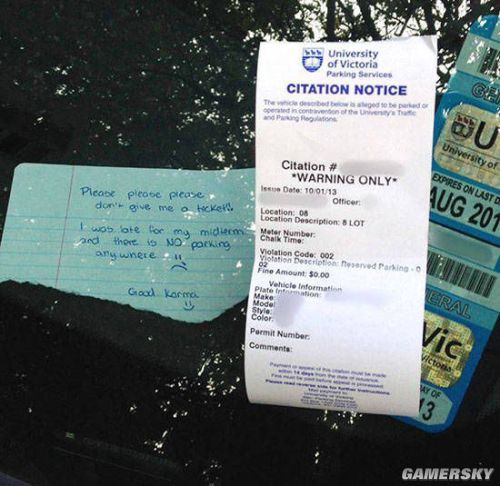 Please please please
don't give me a ticket!!
I was late for my midterm
and there is NO parking
anywhere
Good karma
University
of Victoria
Parking Services
CITATION NOTICE
The vehicle described below is alleged to be parked or
operated in contravention of the University's Traffic
and Parking Regulations.
Citation #
*WARNING ONLY*
Issue Date: 10/01/13
Officer:
Location: 08
Location Description: 8 LOT
Meter Number:
Chalk Time:
Violation Code: 002
Violation Description: Reserved Parking - 0
02
Fine Amount: $0.00
Vehicle Information
Plate Information:
Make:
Model
Style:
Color:
Permit Number:
Comments:
Payment or appeal of this citation must be made
within 14 days from the date of issuance.
Fine must be paid before appeal is processed.
Please read reverse side for further instructions
GE
U
University of
EXPIRES ON LAST D
AUG 201
ERAL
Vic
Victoria
AY OF
13
GAMERSKY